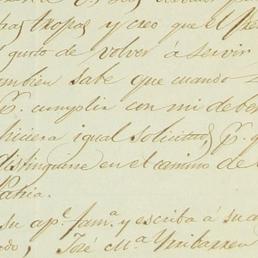 tras tropas y creo que el Pre
gusto de volver á servir
tambien sabe que cuando
P. cumplir con mi deber
hiciera igual solicitud, P. q
distinguirse en el camino de
Patria.
su ap.e fam.a y escriba á su a
José M.a Yrribarren